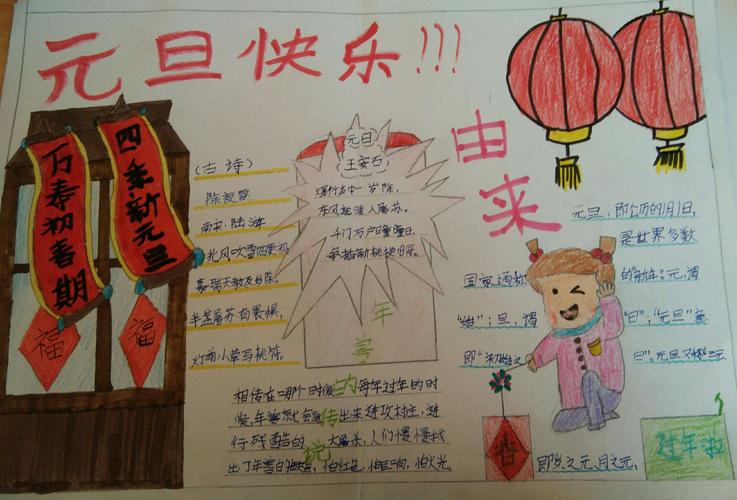 元旦快乐!!!
万寿初春期
四季新元旦
福
福
(古诗)
除夜雪
南宋:陆游
北风吹雪四更初,
嘉瑞天教及岁除。
半盏屠苏犹未举,
灯前小草写桃符。
元日
王安石
爆竹声中一岁除,
东风送暖入屠苏。
千门万户曈曈日,
总把新桃换旧符。
年
兽
的
传
说
相传在哪个时候每年过年的时
候,年兽就会出来进攻村庄,进
行残酷的大屠杀,人们慢慢找
出了年兽的,怕红色,怕巨响,怕火光。
由来
元旦,即公历的1月1日,
是世界多数
国家通称的"新年"。元,谓
"始";旦,谓"日";"元旦"意
即"初始之日"。元旦又称"三元"
即岁之元、月之元、
春
过年啦